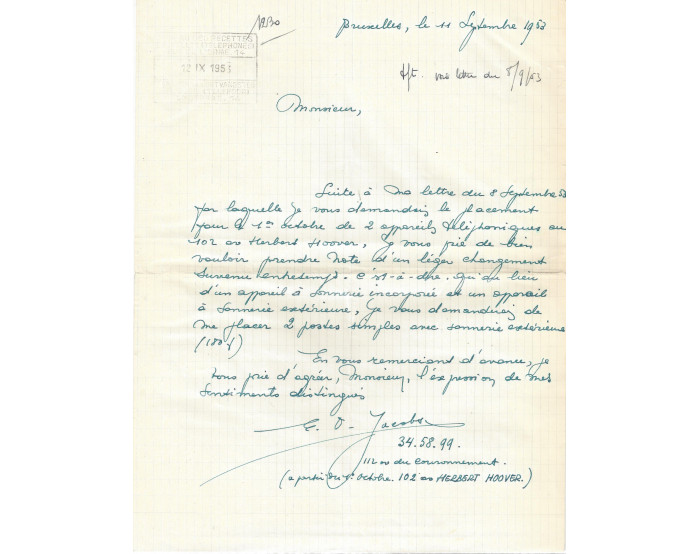 Bruxelles, le 11 Septembre 1953
RECETTES
TELEPHONES
12 IX 195
Aft. vove lettre du 8/9/53
Monsieur,
Suite à ma lettre du 8 Septembre 53
par laquelle je vous demandais le placement
pour le 1er octobre de 2 appareils téléphoniques au
102 av Herbert Hoover, je vous prie de bien
vouloir prendre note d'un léger changement
survenu entretemps. C'est-à-dire, qu'au lieu
d'un appareil à sonnerie incorporée et un appareil
à sonnerie extérieure, je vous demanderais de
me placer 2 postes simples avec sonnerie extérieure
En vous remerciant d'avance, je
vous prie d'agréer, Monsieur, l'expression de mes
sentiments distingués
E. D. Jacobs
34.58.99.
112 av du couronnement.
(a partir du 1er Octobre. 102 av HERBERT HOOVER.)